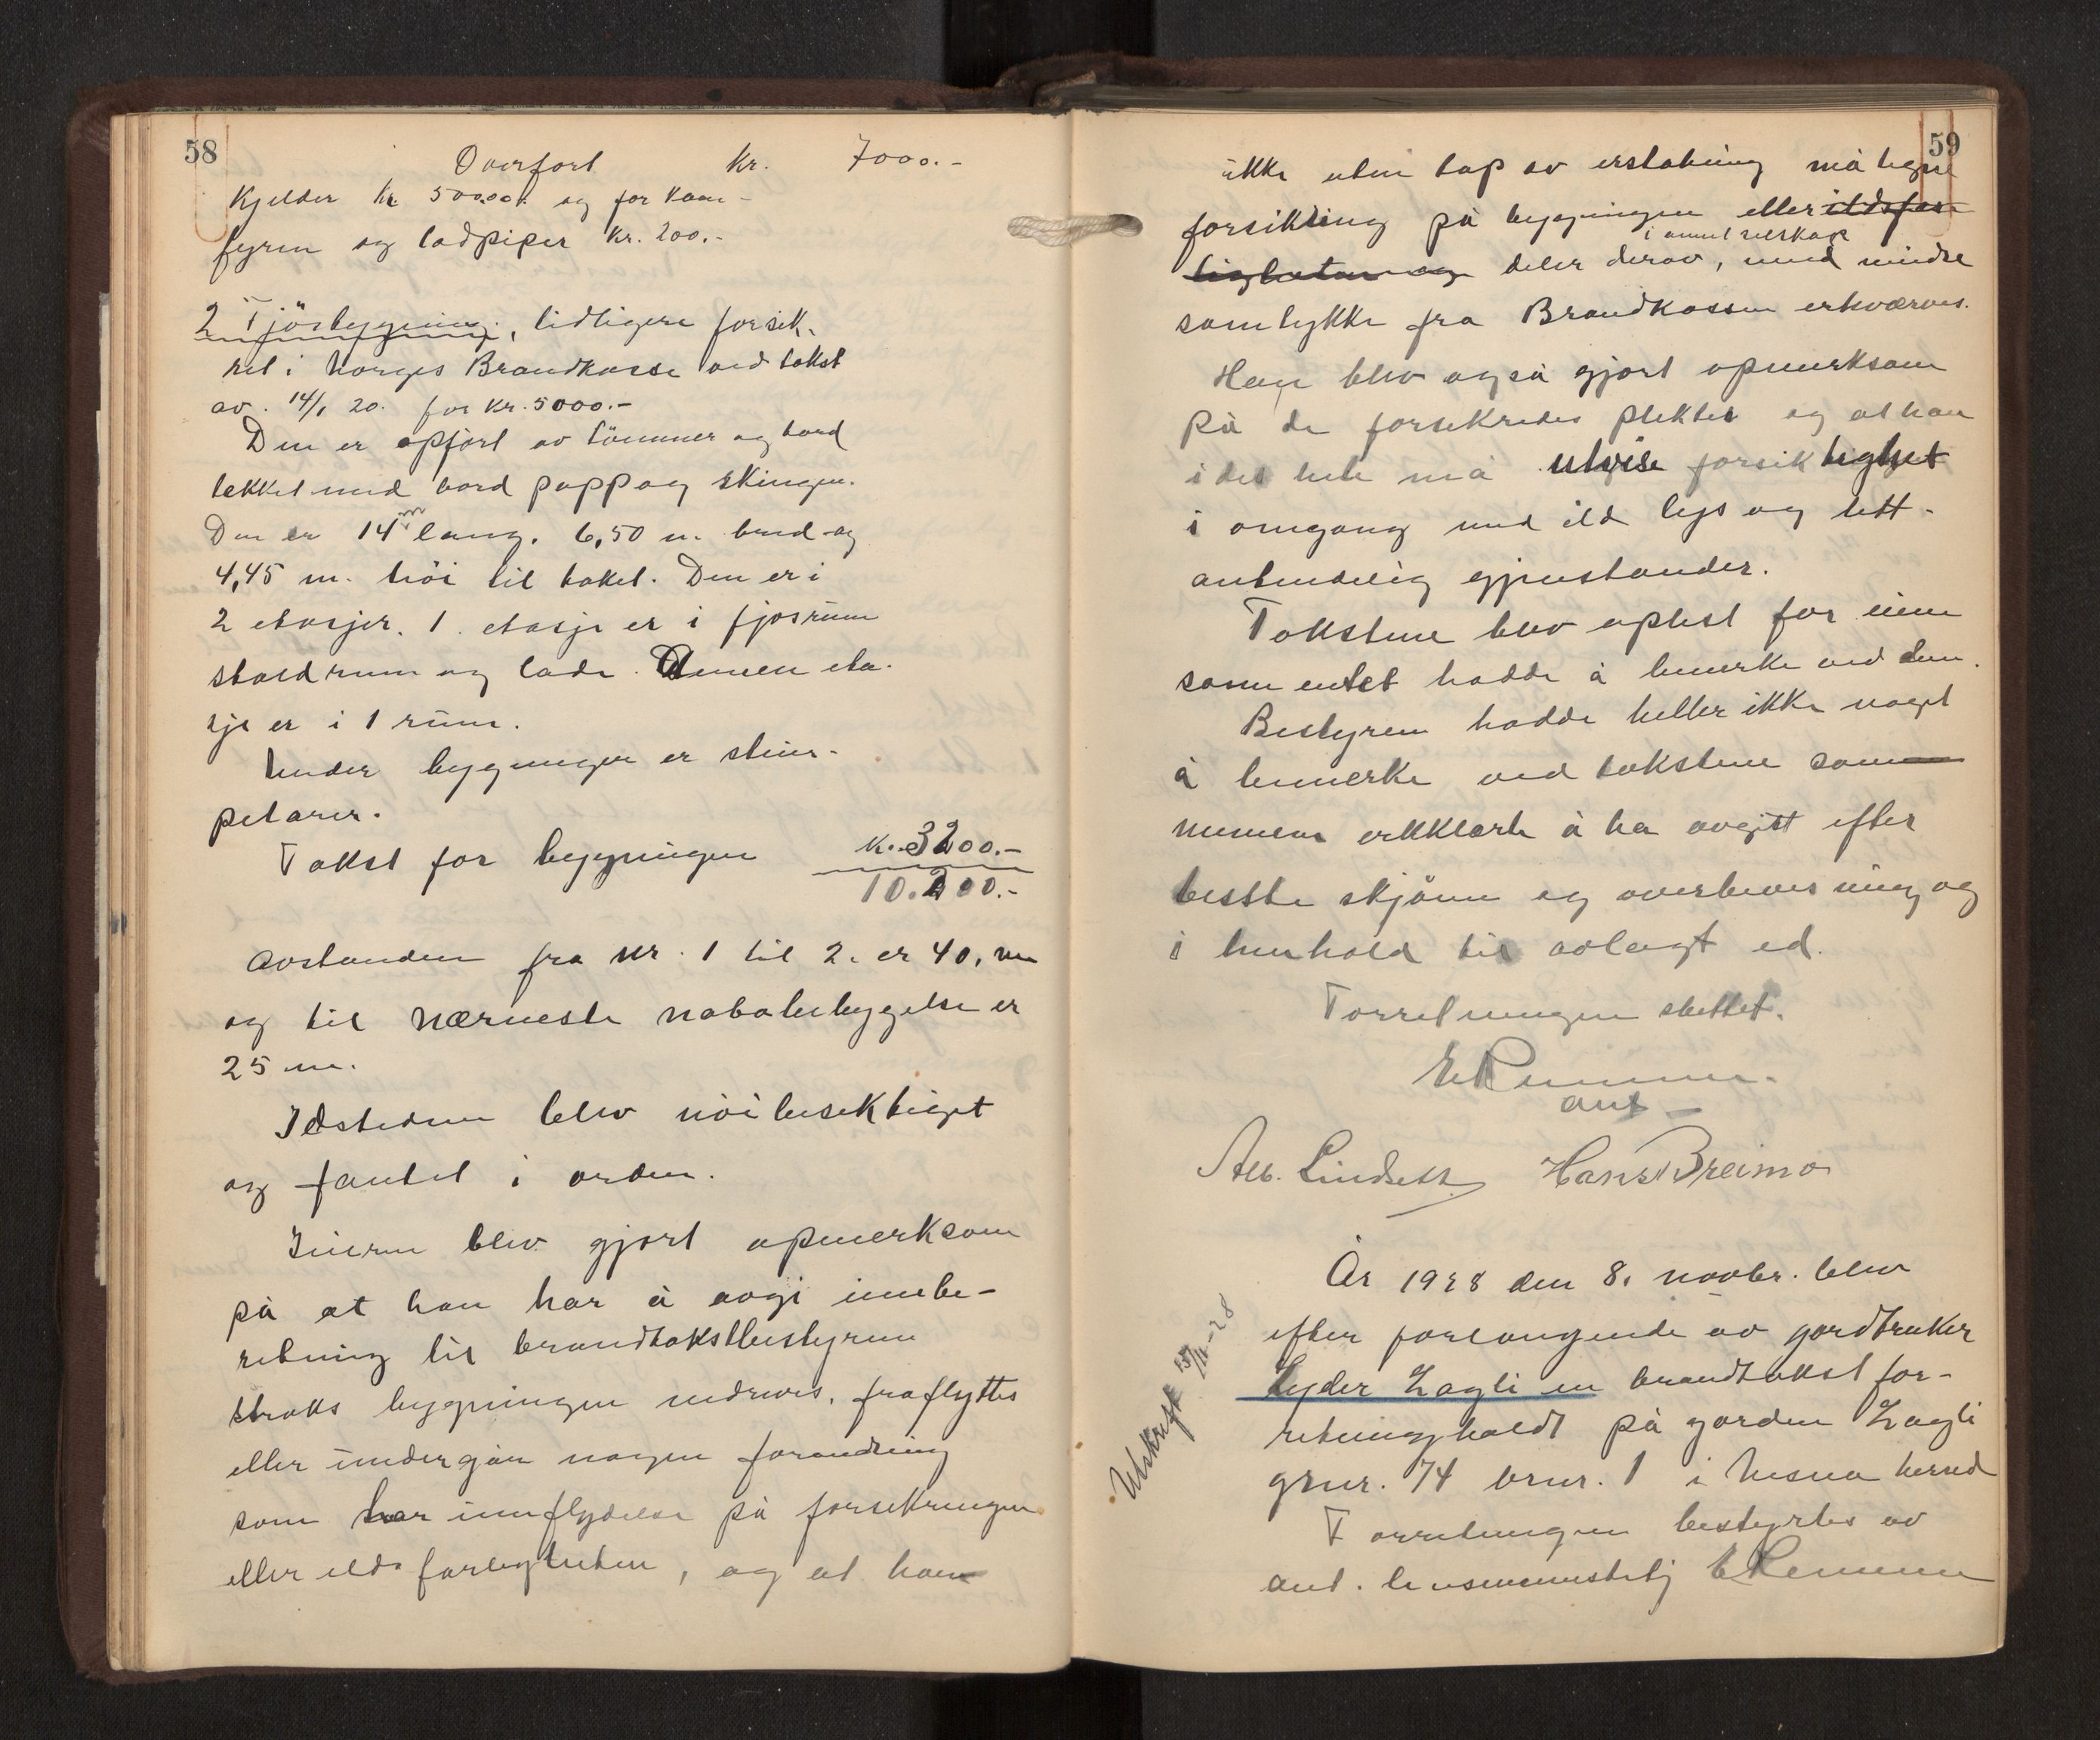 58
Overført kr. 7000.-
Kjelder kr 500.00. og for kom-
fyren og ladpiper kr. 200.-
2 Fjösbygning, tidligere forsik-
ret i Norges Brandkasse ved takst
av. 14/1 20. for kr. 5000.-
Den er opført av tömmer og bord
tekket med bord papp og skingen.
Den er 14 m lang. 6,50 m. bred og
4,45 m. höi til taket. Den er i
2 etasjer. 1. etasje er i fjosrum
staldrum og lade. Annen eta-
sje er i 1 rum.
Under bygningen er stein-
petarer.
Takst for bygningen kr. 3200.-
10.200.-
Avstanden fra nr. 1 til 2. er 40, m
og til nærmeste nabobebyggelse er
25 m.
Ildstedene blev nöi besiktiget
og fantet i orden.
Eieren blev gjort opmerksom
på at han har å avgi innbe-
retning til brandtakstbestyreren
straks bygningen nedrives, fraflyttes
eller undergår nogen forandring
som har innflydelse på forsikringen
eller ildsfarligheten, og at han
59
ikke uten tap av erstatning må tegne
forsikring på bygningen eller ildsfar
ligheten og deler derav, i annet selskap uten mindre
samtykke fra Brandkassen erhverves.
Han blev også gjort opmerksom
på de forsikredes plikter og at han
i det hele må utvise forsiktighet
i omgang med ild lys og lett-
antendelig gjenstander.
Takstene blev oplest for eieren
som intet hadde å bemerke ved dem.
Bestyreren hadde heller ikke noget
å bemerke ved takstene som
mennene erkklærte å ha avgitt efter
beste skjönn og overbevisning og
i henhold til avlagt ed.
Forretningen sluttet.
E Remmen.
ant
Alb. Lindseth Hans Breimo
År 1928 den 8. novbr. blev
efter forlangende av gardbruker
Lyder Zagli en brandtakst for-
retning holdt på garden Zagli
grnr. 74 brnr. 1 i Nesna herred
Forretningen bestyrtes av
ant. lensmannsbetj E Remmen
Utskrift 15/11-28